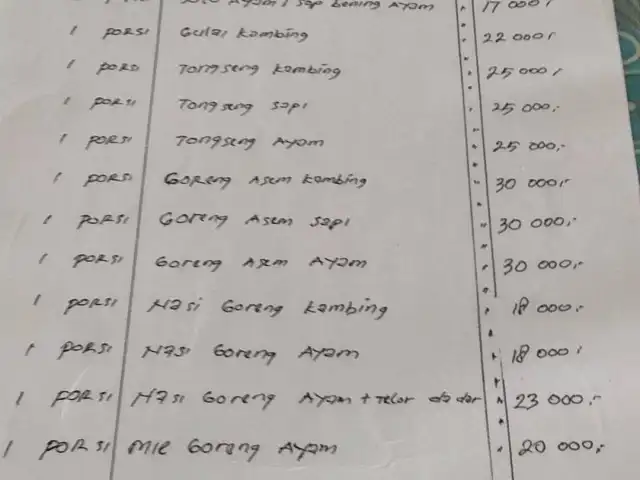 Ayam / sop bening Ayam " 17 000,-
1 PORSI Gulai Kambing " 22 000,-
1 PORSI Tongseng Kambing " 25 000,-
1 PORSI Tongseng sapi " 25 000,-
1 PORSI Tongseng Ayam " 25 000,-
1 PORSI GORENG Asem Kambing " 30 000,-
1 PORSI GORENG Asem sapi " 30 000,-
1 PORSI Goreng Asem Ayam " 30 000,-
1 PORSI Nasi Goreng Kambing " 18 000,-
1 PORSI Nasi Goreng Ayam " 18 000,-
1 PORSI Nasi Goreng Ayam + telor da dar " 23 000,-
1 PORSI MIE Goreng Ayam " 20 000,-